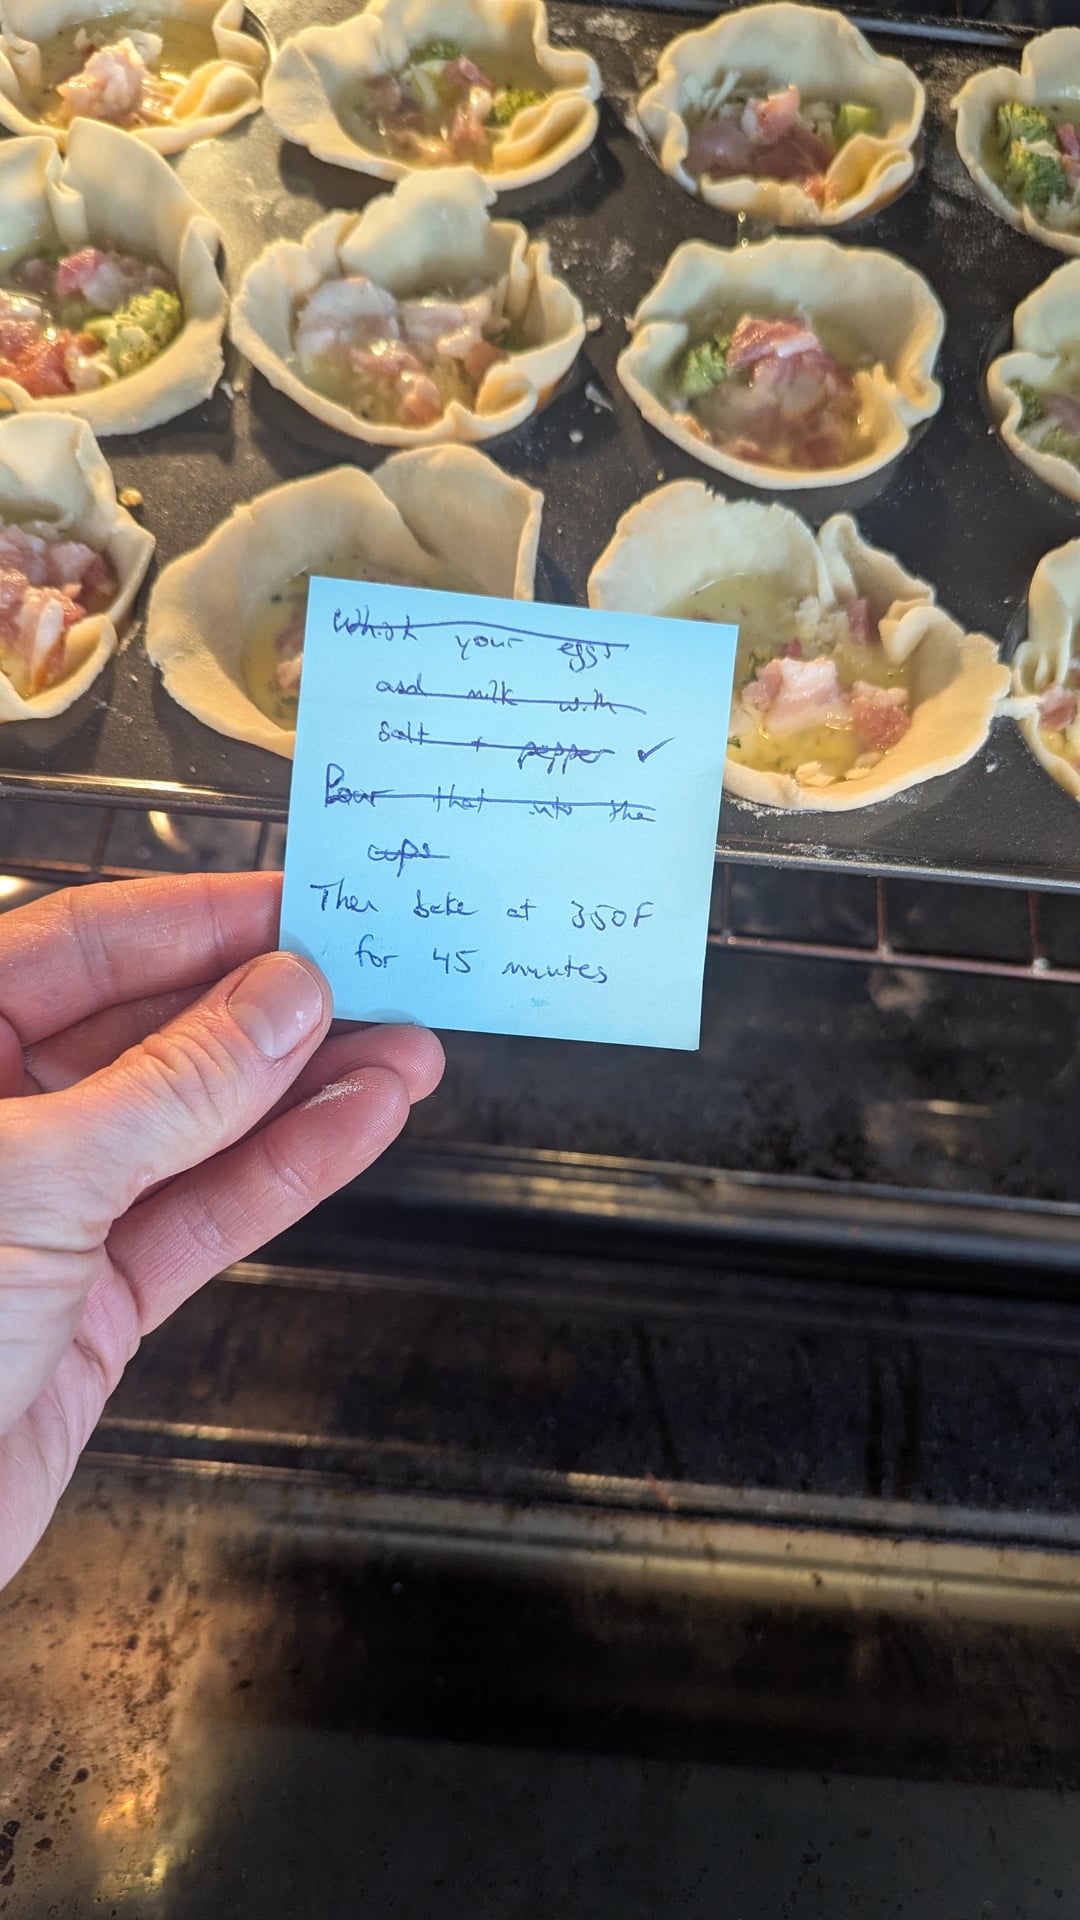 Whisk your eggs
and milk with
Salt + pepper ✓
Pour that into the
cups
Then bake at 350F
for 45 minutes